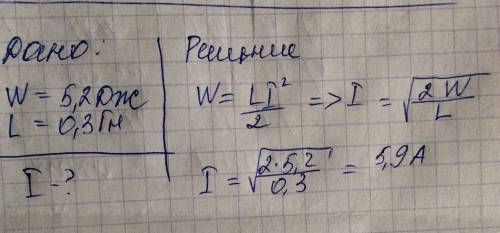 Дано:
W = 5,2 Дж
L = 0,3 Гн
I - ?
Решение
W = LI²/2 => I = √(2W/L)
I = √(2·5,2/0,3) = 5,9 А